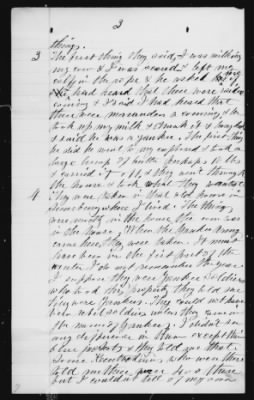 3
things.
3 The first thing they said, I was milking
my cow & I was scared & left my
calf in the rope & he asked me if
I had heard that there were raiders
coming & I said I had heard that
there were marauders a coming, & he
took up my milk & drank it &
& said he was a yankee. The first thing
he did he went to my cupboard & took a
large lump of butter perhaps 10 lbs
& carried it off, & they went through
the house & took what they wanted.
4 They were taken in that old house in
where I lived. The things
were mostly in the house the cow was
in the house. When the Yankee army
came here, they were taken. It must
have been in the first part of the
winter, I do not remember the year.
I suppose they were Yankee soldiers
who took this property they told me
they were Yankees. They could not have
been rebel soldiers unless they came in
the name of Yankees; I didn't see
any difference in them except their
blue jackets & they told me that
some Kentuckians, who were there
told me there were too there
but I couldn't tell of my own